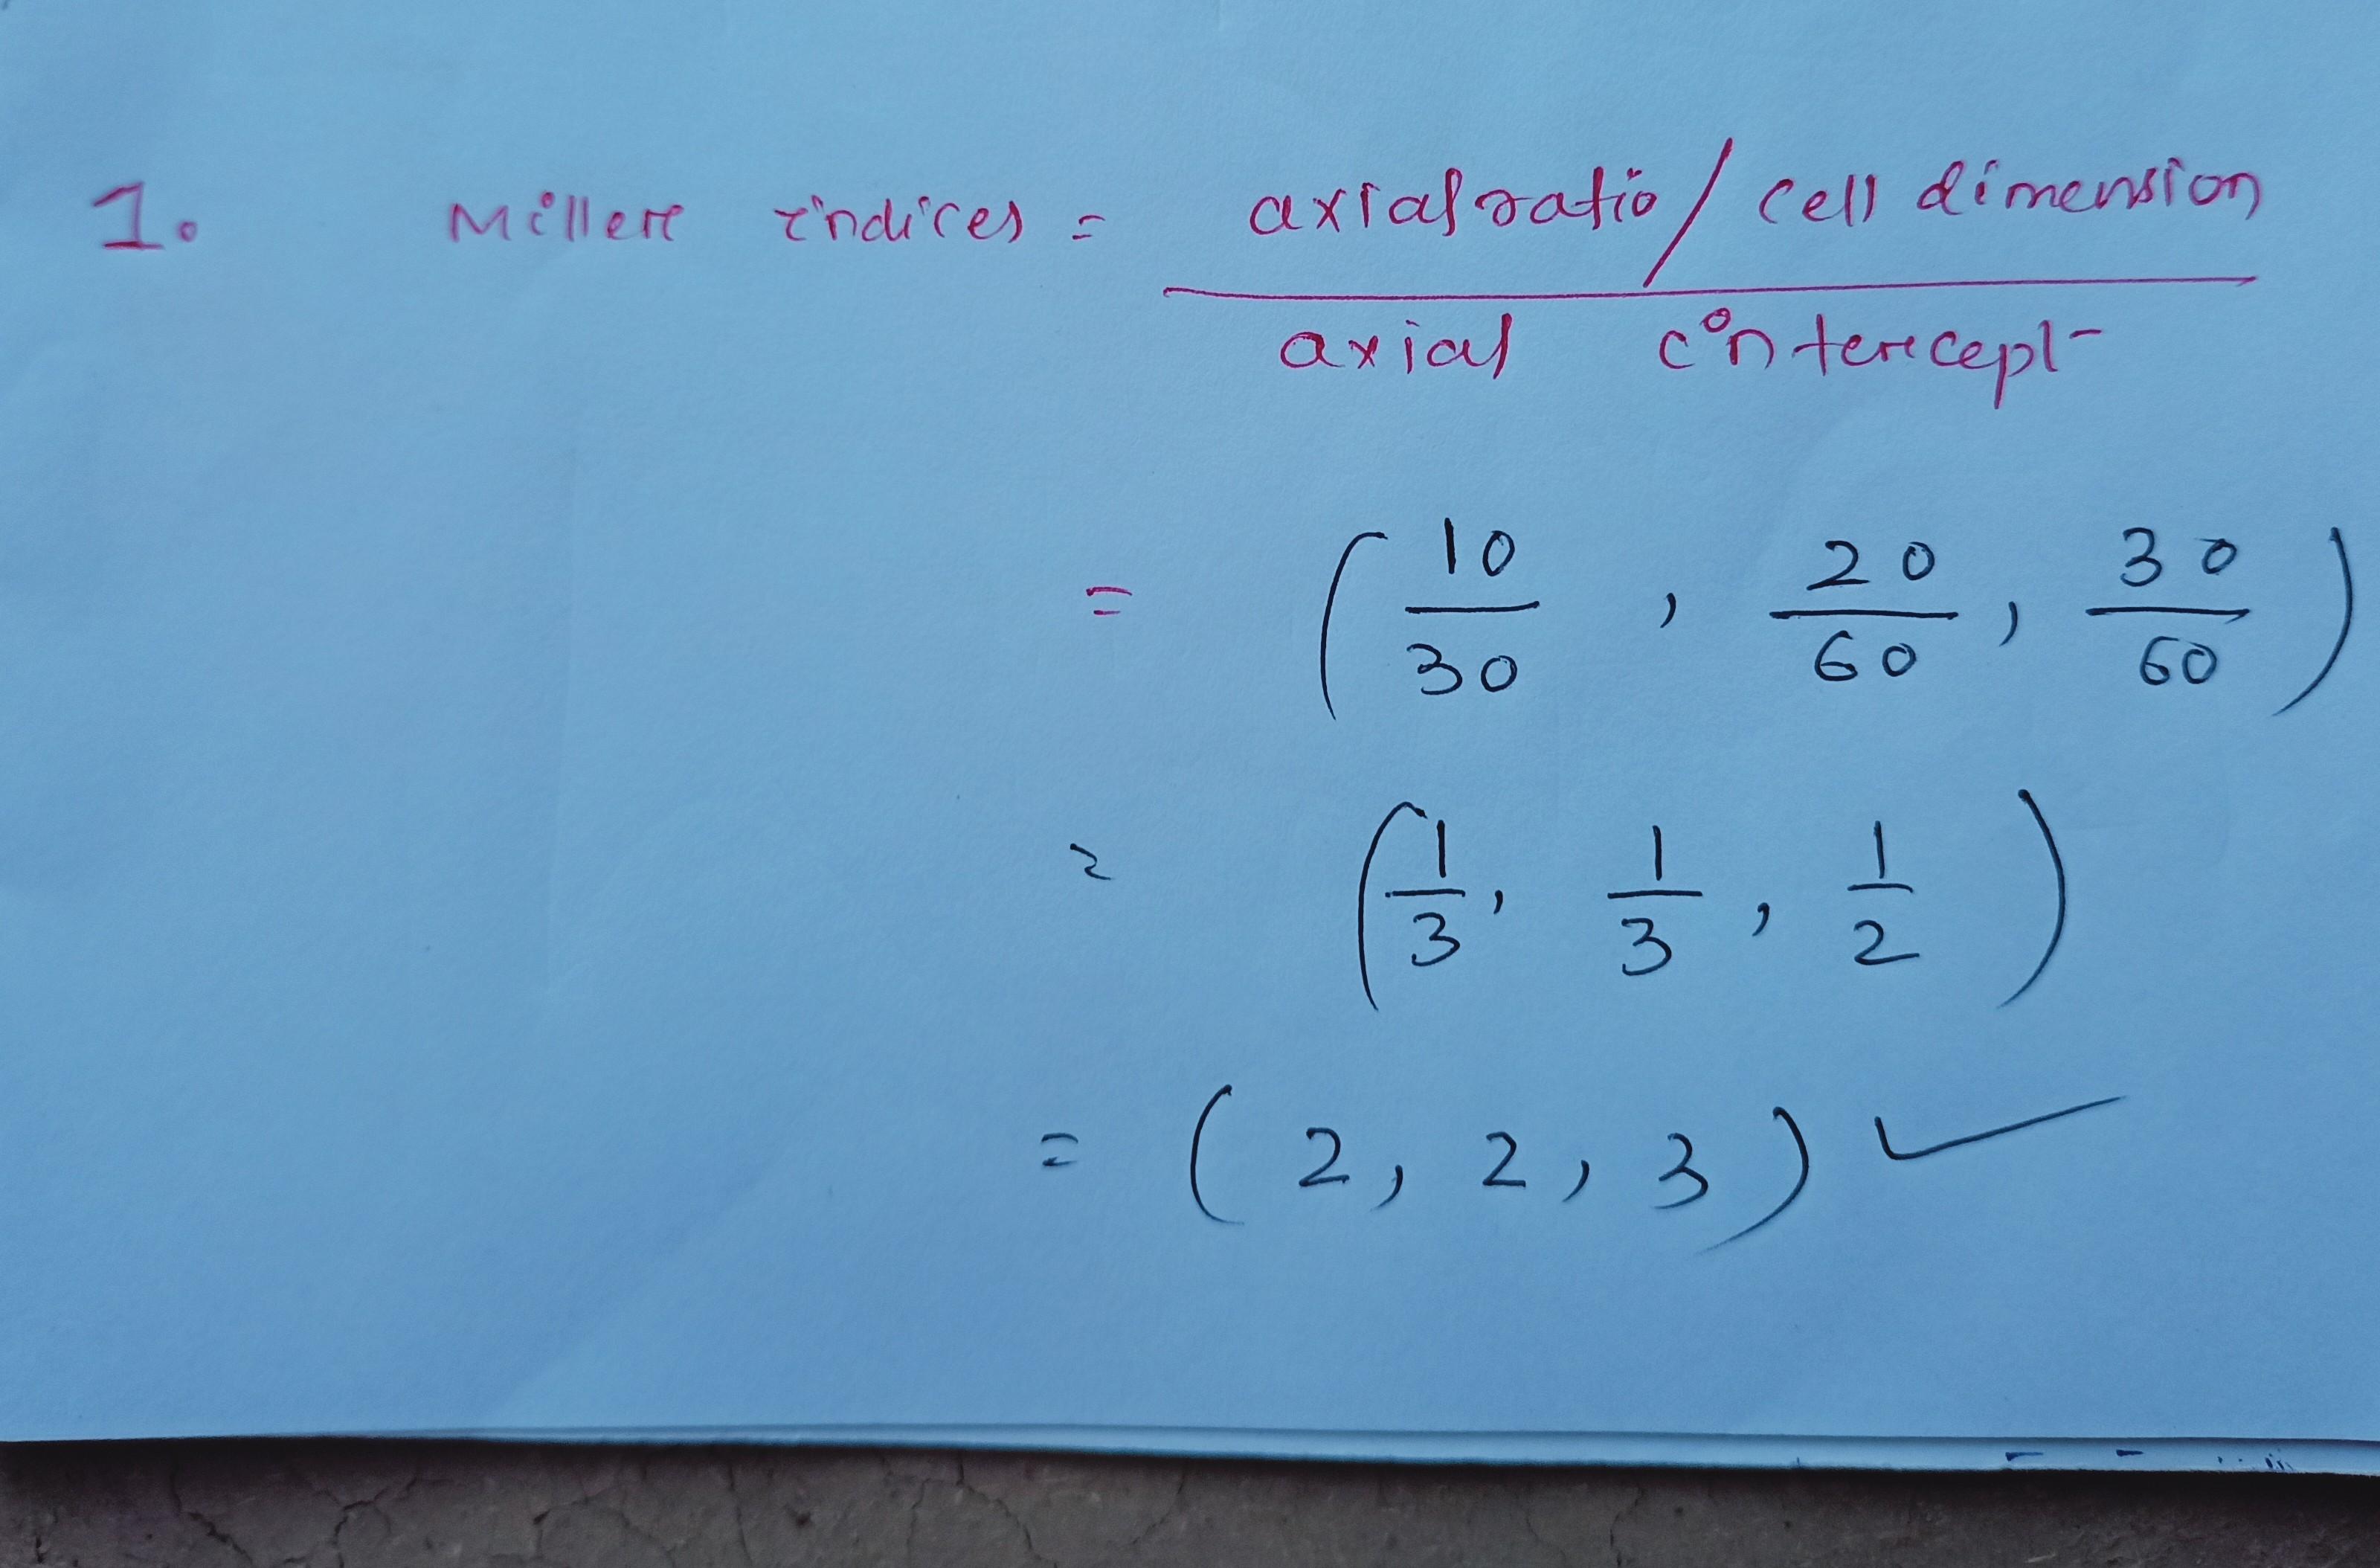 1. Miller indices = axial ratio / cell dimension
axial intercept
= ( 10/30 , 20/60 , 30/60 )
= ( 1/3 , 1/3 , 1/2 )
= ( 2, 2, 3 ) ✓